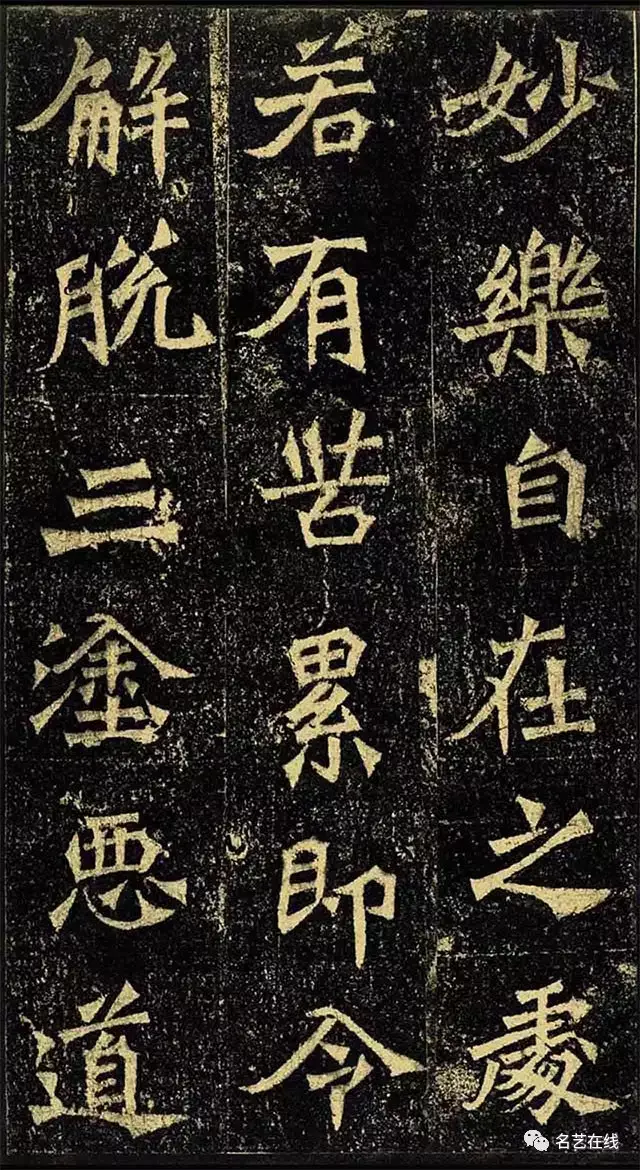 妙樂自在之處
若有苦累即令
解脱三塗惡道
名艺在线